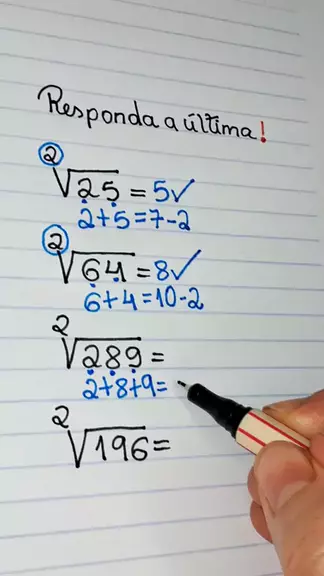 Responda a última!
²√25 = 5✓
2+5=7-2
²√64 = 8✓
6+4=10-2
²√289 =
2+8+9=
²√196 =